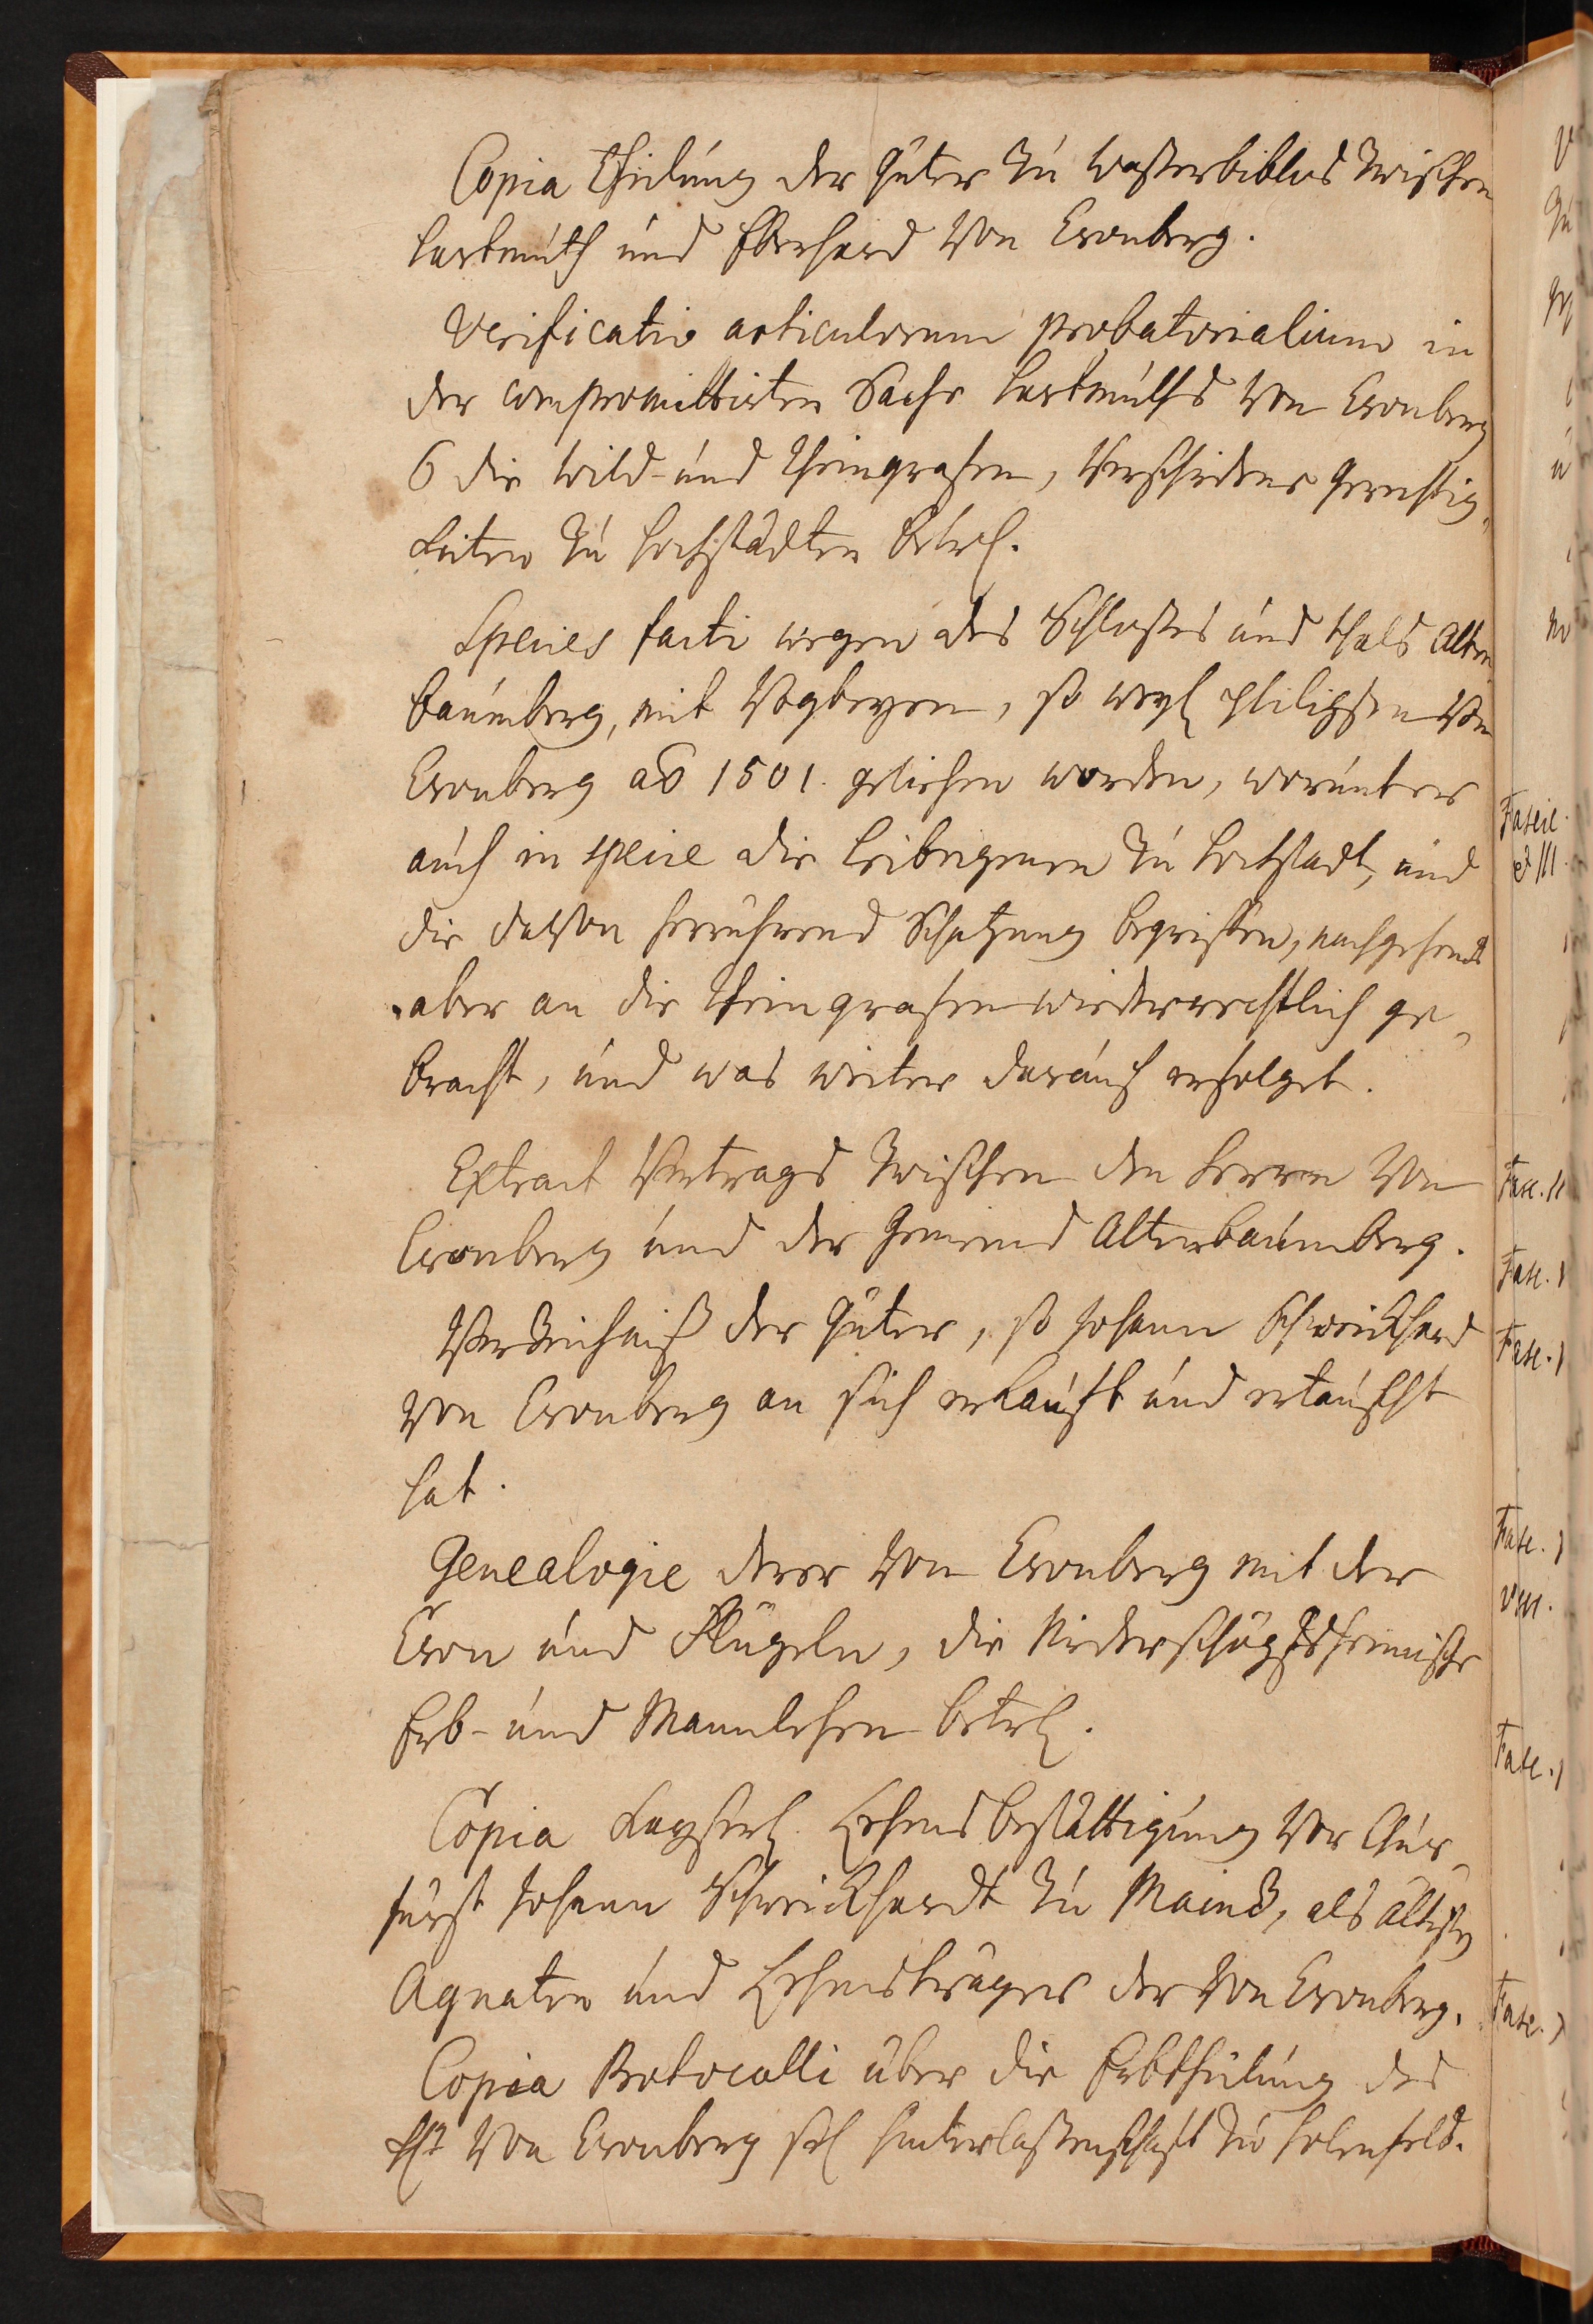 Copia Theilung der Güter zu Wasterbiblos zwischen
Hartmuth und Eberhard von Cronberg.
Verificatio articulorum probatorialium in
der compromittirten Sache Hartmuths von Cronberg
die Wild- und Rheingrafen, verschidene Gerechtig-
keiten zu Hochstädten betrl.
Species facti wegen des Schloßes und Thals Alten-
baumberg, mit Vogteyen, so weyl Philippsen von
Cronberg ao 1501. geliehen worden, worunter
auch in specie die Leibeigenen zu Hochstadt, und
die davon herrührend Schatzung begriffen, nachgehends
aber an die Rheingrafen wiederrechtlich ge-
bracht, und was weiter darauf erfolget.
Extract Vertrags zwischen den Herren von
Cronberg und der Gemeind Altenbaumberg.
Verzeichniß der Güter, so Johann Schweickhard
von Cronberg an sich erkauft und ertauscht
hat.
Genealogie derer von Cronberg mit der
Cron und Flügeln, die
Erb- und Mannlehen betrl.
Copia Kayserl. Lehensbestättigung vor Chur-
fürst Johann Schweickhardt zu Mainz, als ältesten
Agnaten und Lehensträger der von Cronberg.
Copia Protocolli über die Erbtheilung des
von Cronberg sel Hinterlaßenschaft zu Holenfels.
Fascic.
& III.
Fasc. II
Fasc.
Fasc.
Fasc.
VIII.
Fasc.
Fasc.